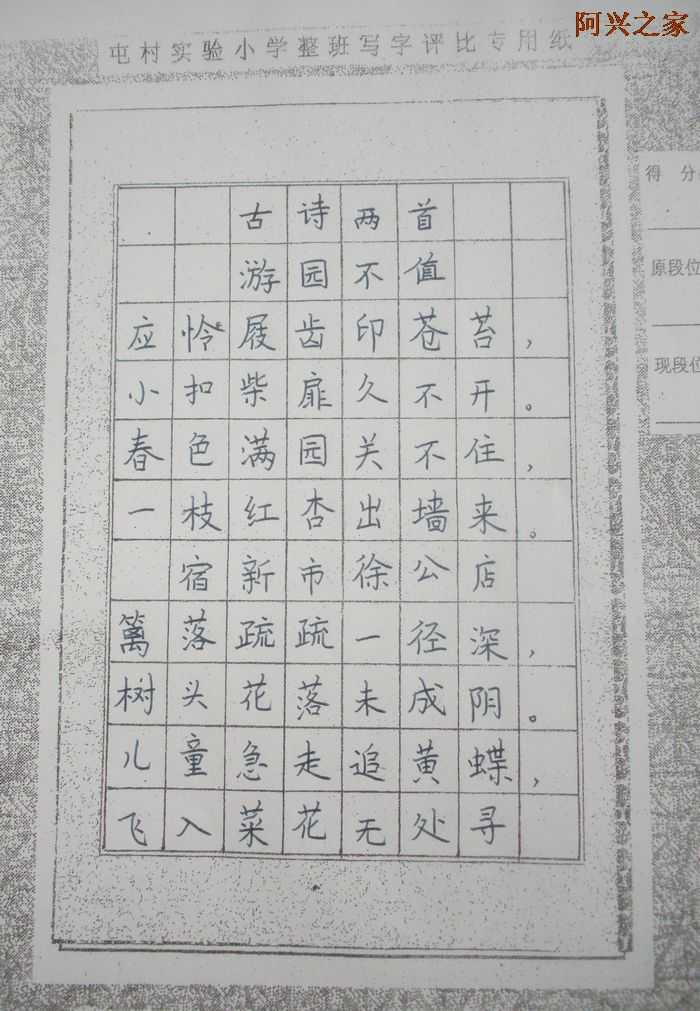 阿兴之家
屯村实验小学整班写字评比专用纸
得 分
原段位
现段位
古诗两首
游园不值
应怜屐齿印苍苔，
小扣柴扉久不开。
春色满园关不住，
一枝红杏出墙来。
宿新市徐公店
篱落疏疏一径深，
树头花落未成阴。
儿童急走追黄蝶，
飞入菜花无处寻